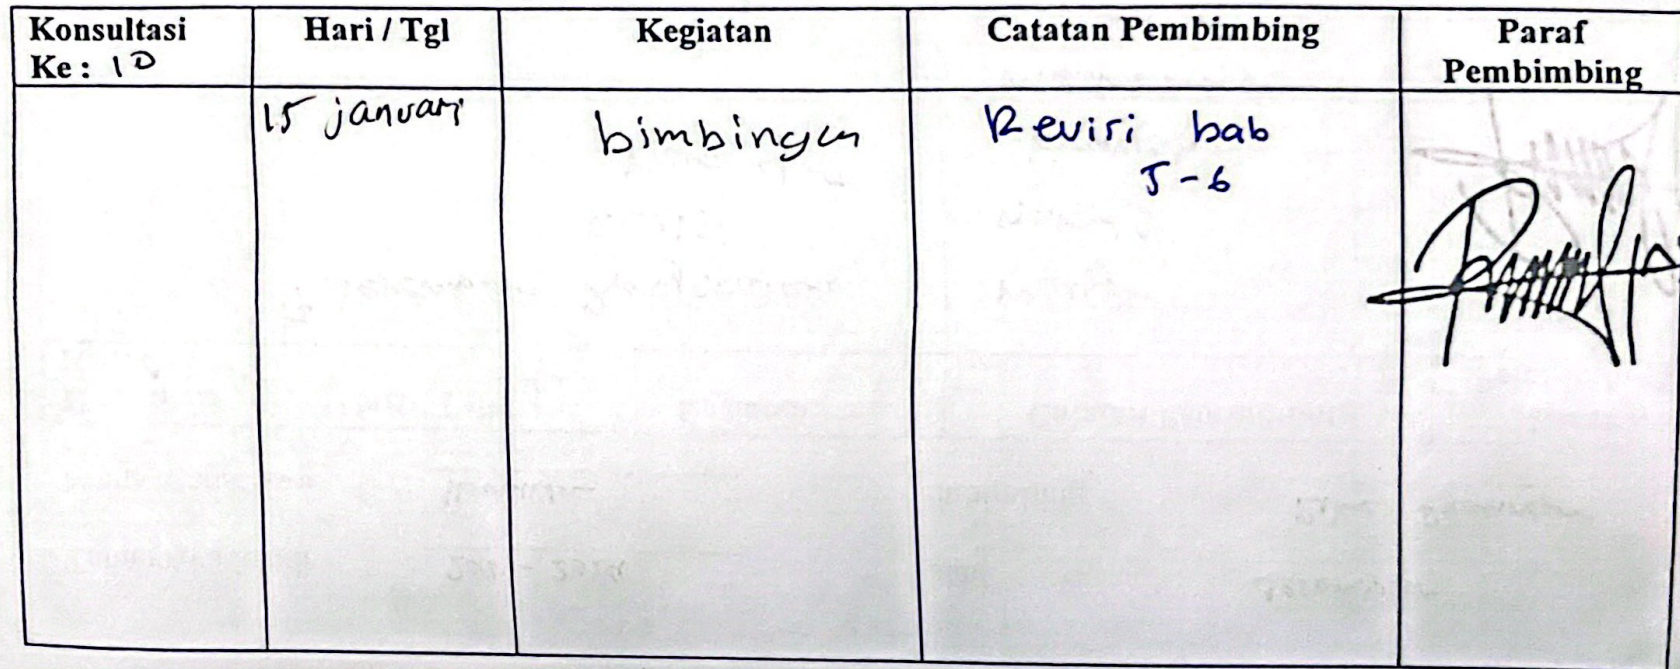 Konsultasi
Ke : 10
Hari / Tgl
Kegiatan
Catatan Pembimbing
Paraf
Pembimbing
15 januari
bimbingan
Revisi bab
5-6